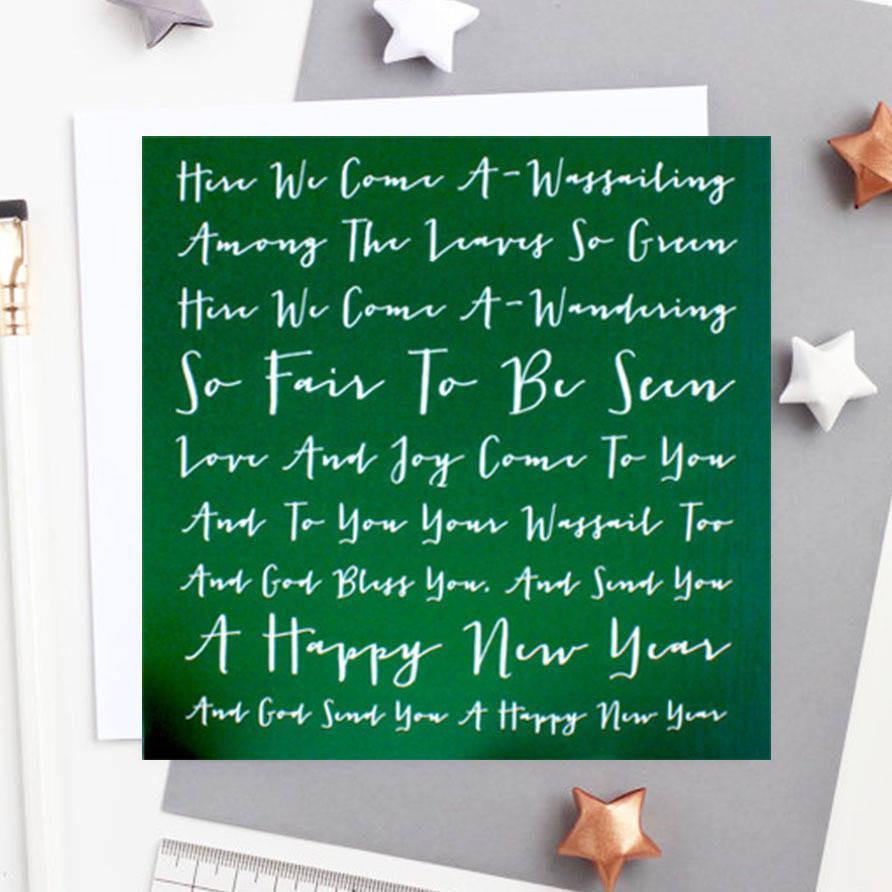 Here We Come A-Wassailing
Among The Leaves So Green
Here We Come A-Wandering
So Fair To Be Seen
Love And Joy Come To You
And To You Your Wassail Too
And God Bless You. And Send You
A Happy New Year
And God Send You A Happy New Year